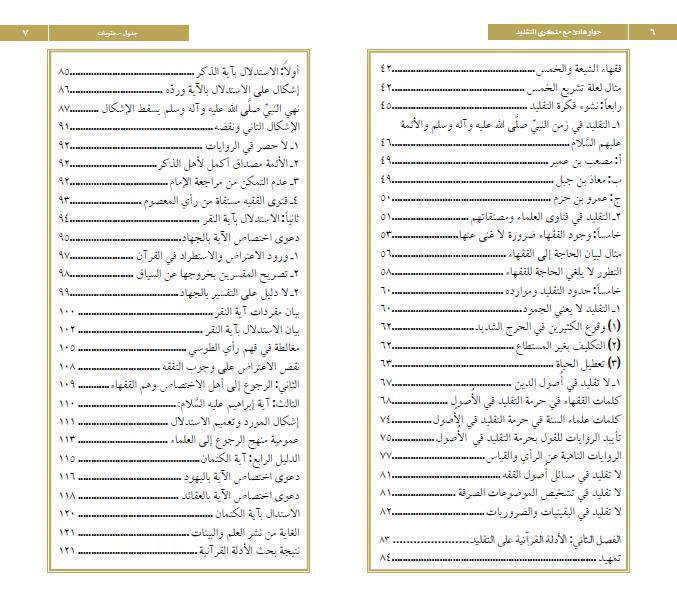 ٦ حوار هادئ مع منكري التقليد
فقهاء الشيعة والخمس ٤٢
مثال لعلة تشريع الخمس ٤٢
رابعاً: نشوء فكرة التقليد ٤٥
١ـ التقليد في زمن النبيّ صلَّى الله عليه وآله وسلم والأئمة
عليهم السَّلام ٤٦
أ: مصعب بن عمير ٤٩
ب: معاذ بن جبل ٤٩
ج: عمرو بن حزم ٥٠
٢ـ التقليد في فتاوى العلماء ومصنفاتهم ٥١
خامساً: وجود الفقهاء ضرورة لا غنى عنها ٥٣
مثال لبيان الحاجة إلى الفقهاء ٥٦
التطور لا يلغي الحاجة للفقهاء ٥٨
خامساً: حدود التقليد وموارده ٦٠
١ـ التقليد لا يعني الجمود ٦٠
(١) وقوع الكثيرين في الحرج الشديد ٦٢
(٢) التكليف بغير المستطاع ٦٢
(٣) تعطيل الحياة ٦٣
١ـ لا تقليد في أصول الدين ٦٧
كلمات الفقهاء في حرمة التقليد في الأصول ٦٨
كلمات علماء السنة في حرمة التقليد في الأصول ٧٤
تأييد الروايات للقول بحرمة التقليد في الأصول ٧٥
الروايات الناهية عن الرأي والقياس ٧٧
لا تقليد في مسائل أصول الفقه ٨١
لا تقليد في تشخيص الموضوعات الصرفة ٨١
لا تقليد في اليقينيات والضروريات ٨٢
الفصل الثاني: الأدلة القرآنية على التقليد ٨٣
تمهيد ٨٤
جدول محتويات ٧
أولاً: الاستدلال بآية الذكر ٨٥
إشكال على الاستدلال بالآية وردّه ٨٦
نهي النبيّ صلَّى الله عليه وآله وسلم يسقط الإشكال ٨٧
الإشكال الثاني ونقضه ٩١
١ـ لا حصر في الروايات ٩٢
٢ـ الأئمة مصداق أكمل لأهل الذكر ٩٢
٣ـ عدم التمكن من مراجعة الإمام ٩٢
٤ـ فتوى الفقيه مستقاة من رأي المعصوم ٩٣
ثانياً: الاستدلال بآية النفر ٩٤
دعوى اختصاص الآية بالجهاد ٩٥
١ـ ورود الاعتراض والاستطراد في القرآن ٩٧
٢ـ تصريح المفسرين بخروجها عن السياق ٩٨
٢ـ لا دليل على التفسير بالجهاد ٩٩
بيان مفردات آية النفر ١٠٠
بيان الاستدلال بآية النفر ١٠٢
مغالطة في فهم رأي الطوسي ١٠٥
نقض الاعتراض على وجوب التفقه ١٠٨
الثاني: الرجوع إلى أهل الاختصاص وهم الفقهاء ١٠٩
الثالث: آية إبراهيم عليه السَّلام: ١١٠
إشكال المورد وتعميم الاستدلال ١١١
عمومية منهج الرجوع إلى العلماء ١١٣
الدليل الرابع: آية الكتمان ١١٥
دعوى اختصاص الآية باليهود ١١٦
دعوى اختصاص الآية بالعقائد ١١٨
الاستدال بآية الكتمان ١٢٠
الغاية من نشر العلم والبينات ١٢١
نتيجة بحث الأدلة القرآنية ١٢١